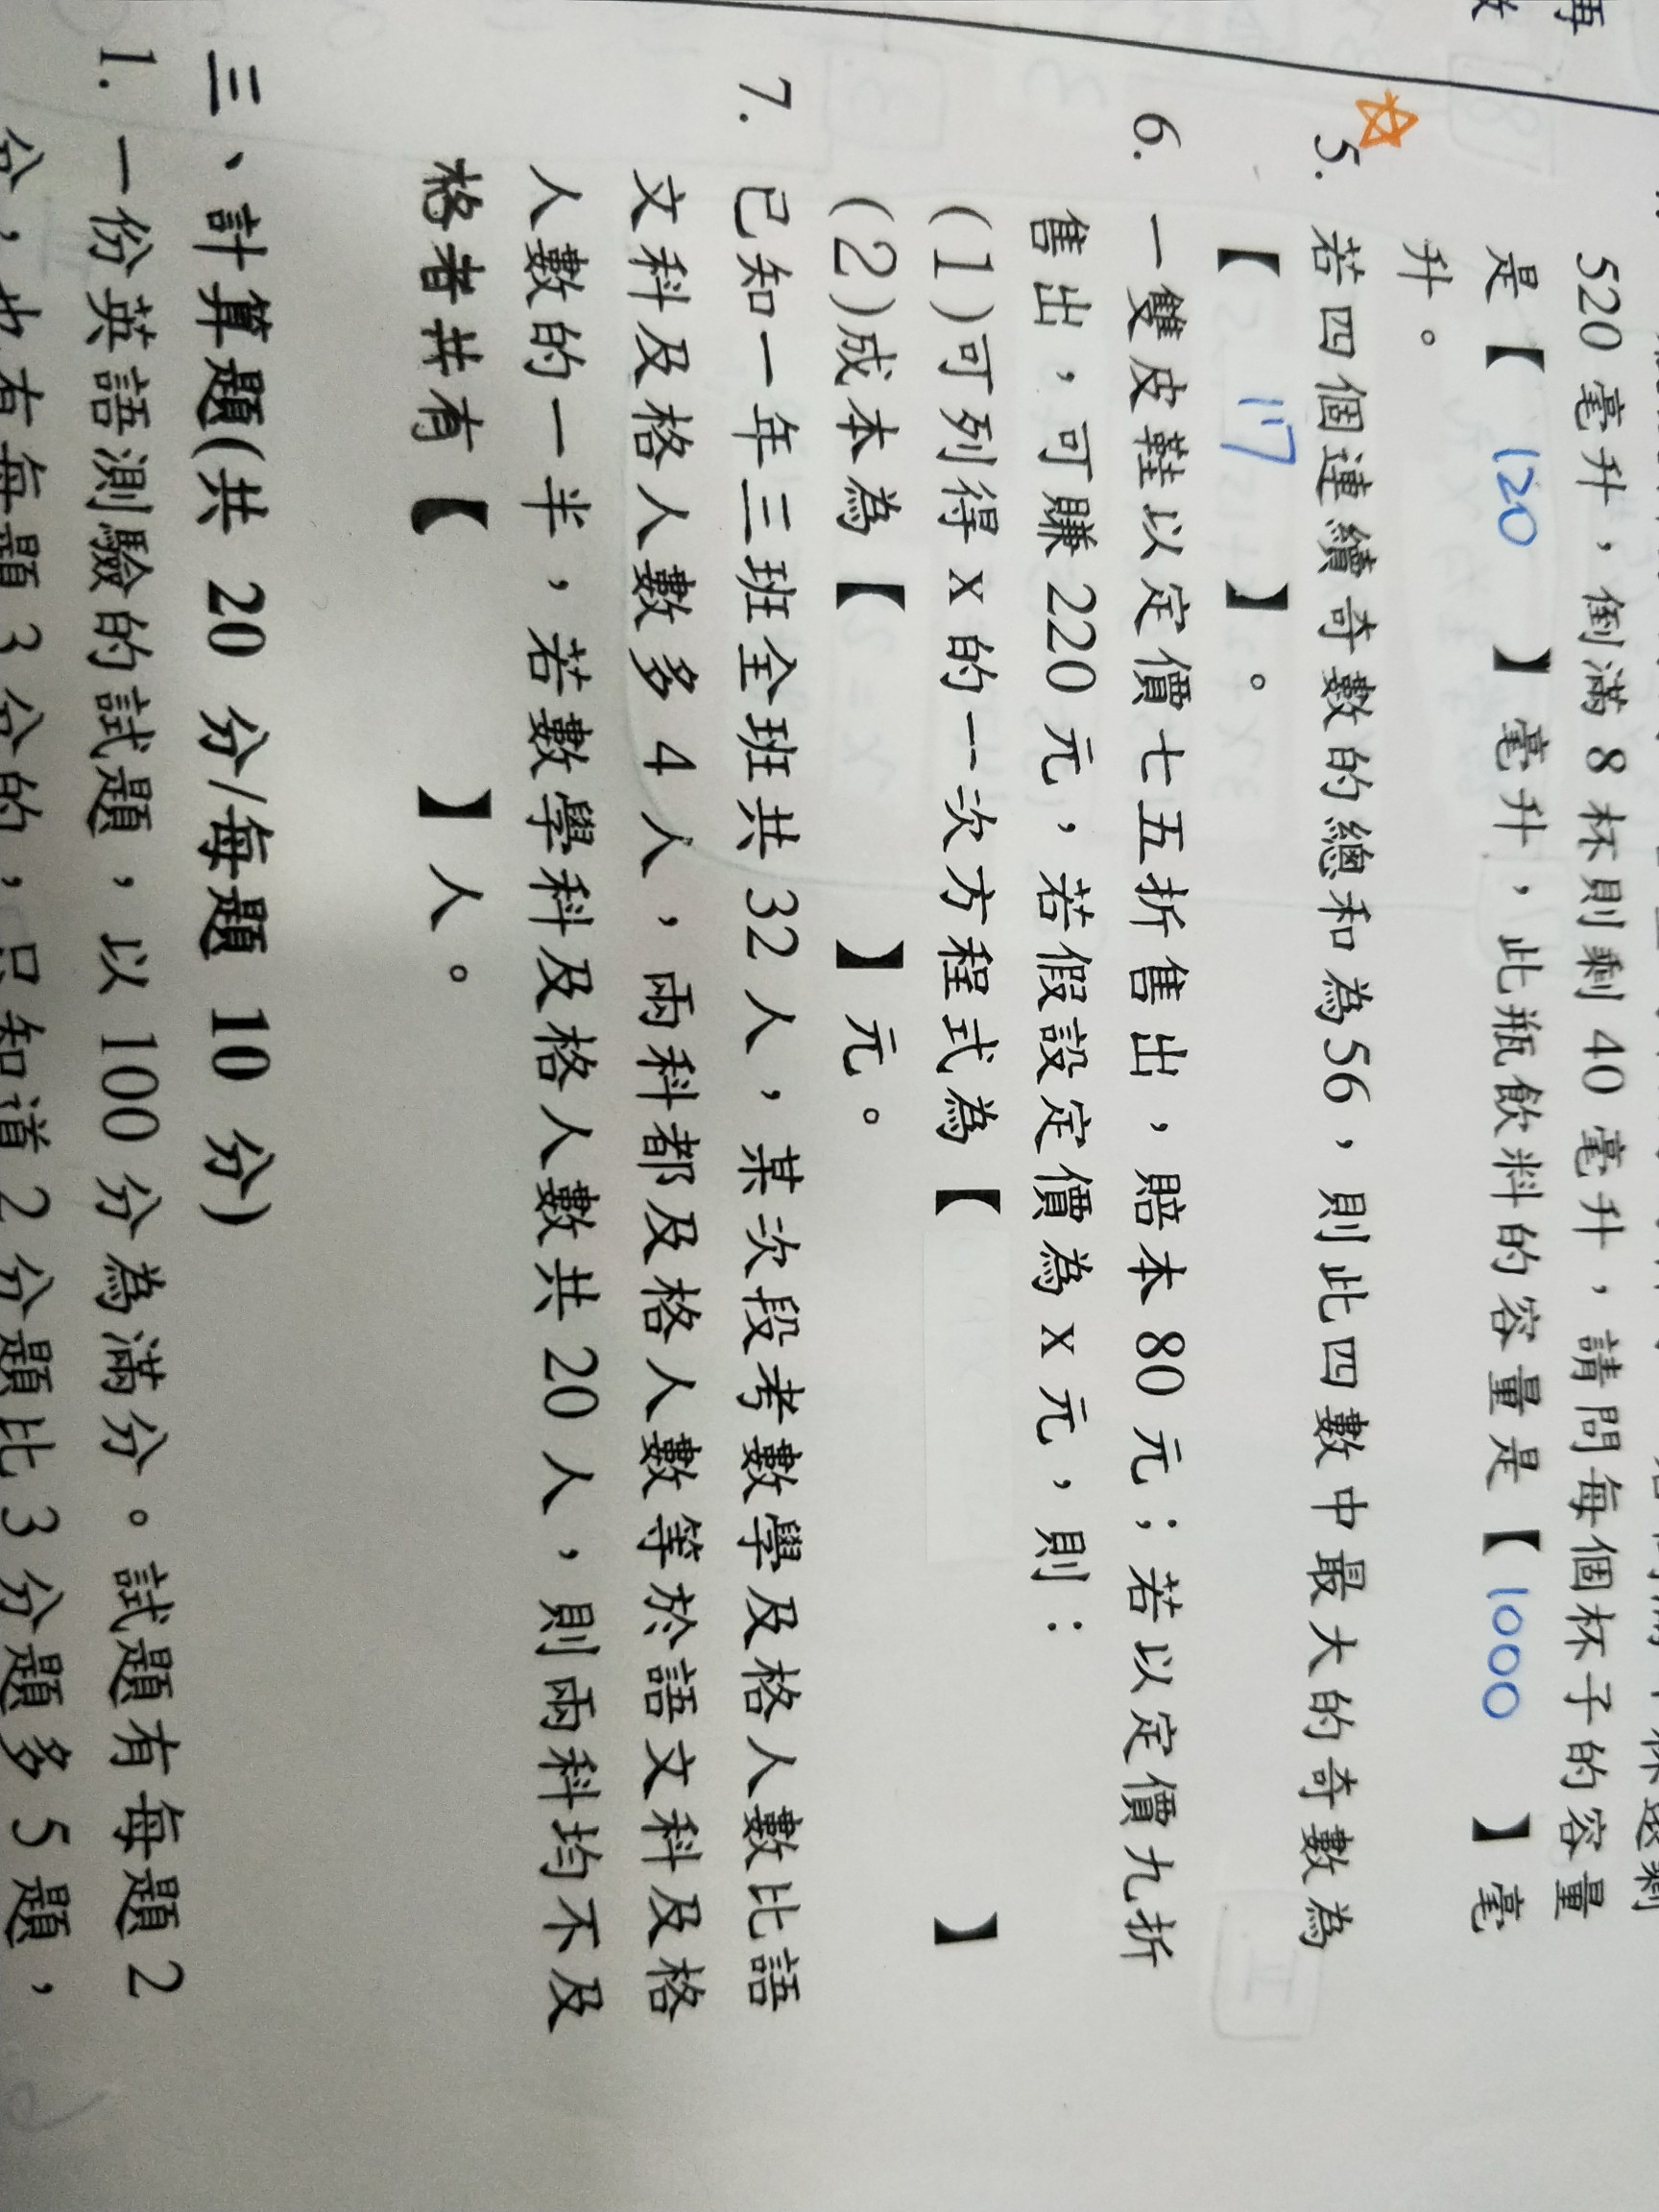 520 毫升，倒滿 8 杯則剩 40 毫升，請問每個杯子的容量
是【 120 】毫升，此瓶飲料的容量是【 1000 】毫
升。
☆
5. 若四個連續奇數的總和為56，則此四數中最大的奇數為
【 17 】。
6. 一雙皮鞋以定價七五折售出，賠本 80 元；若以定價九折
售出，可賺 220 元，若假設定價為 x 元，則：
(1)可列得 x 的一次方程式為【 】
(2)成本為【 】元。
7. 已知一年三班全班共 32 人，某次段考數學及格人數比語
文科及格人數多 4 人，兩科都及格人數等於語文科及格
人數的一半，若數學科及格人數共 20 人，則兩科均不及
格者共有【 】人。
三、計算題(共 20 分/每題 10 分)
1. 一份英語測驗的試題，以 100 分為滿分。試題有每題 2
分，也有每題 3 分的，只知道 2 分題比 3 分題多 5 題，